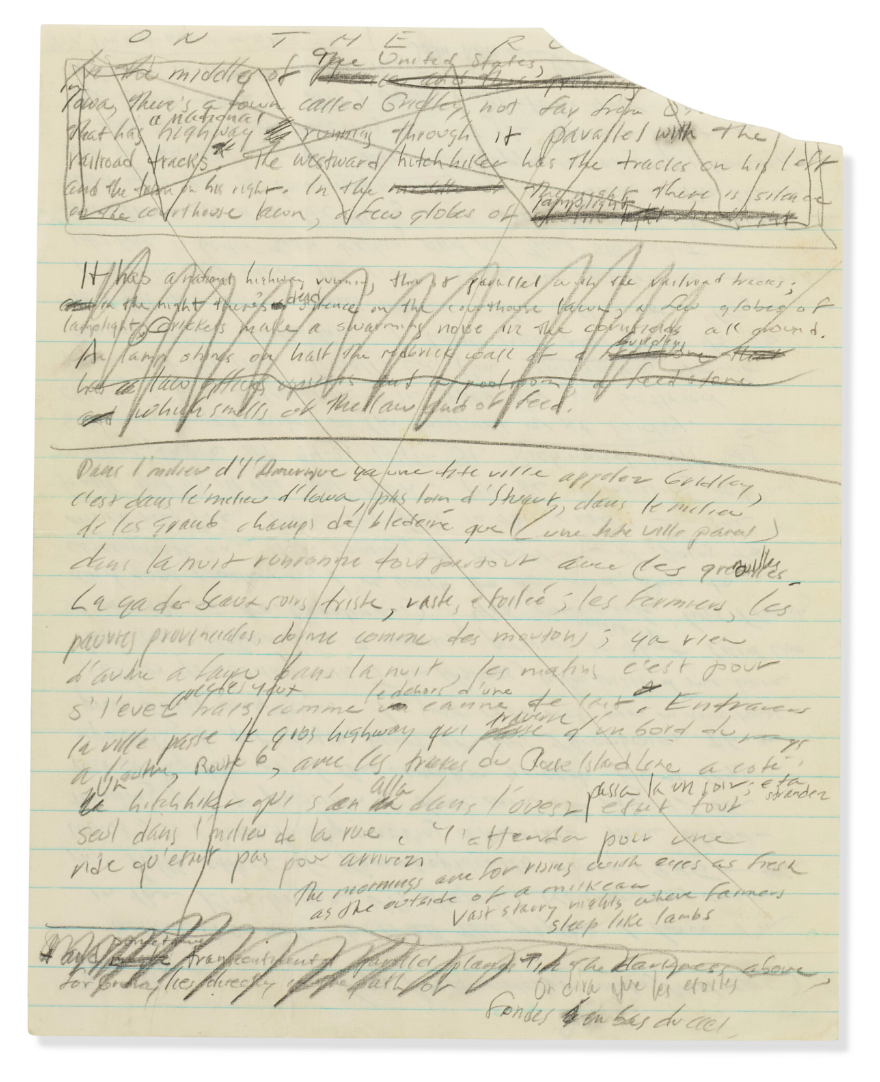 ON THE
The United States,
In the middle of
Iowa, there's a town called Gridley, not far from
a national
that has highway running through it parallel with the
railroad tracks. The westward hitchhiker has the tracks on his left
and the town on his right. In the night there is silence
lamplight
on the courthouse lawn, a few globes of
It has a national highway running thru it parallel with the railroad tracks;
dead
in the night there's silence on the courthouse lawn, a few globes of
lamplight. Crickets make a swarming noise in the cornfields all around.
building
A lamp shines on half the redbrick wall of a
has a law office upstairs and a poolroom, a feedstore
which smells of the law and of feed.
Dans l'milieu d'l'Amerique ya une tite ville appelez Gridley,
c'est dans l'milieu d'Iowa, pas loin d'Stuart, dans le milieu
de les grands champs de bledeiné que (une tite ville pareil)
dans la nuit ronronne tout partout avec les
La ya des beaux soirs triste, vaste, etoileé; les fermiers, les
pauvres provinciales, dorme comme des moutons; ya rien
d'autre a faire dans la nuit, les matins c'est pour
le dehors d'une
s'l'evez frais comme canne de lait. Entravers
traverse
la ville passe le gros highway qui d'un bord du pays
a l'autre, Route 6, avec les traques du Rock Island Line a coté.
Un alla passa la un soir;
hitchhiker qui s'en dans l'ouest etait tout
seul dans l'milieu de la rue. Y'attendai pour une
ride qu'etait pas pour arrivez
The mornings are for rising with eyes as fresh
as the outside of a milkcan
Vast starry nights where farmers
sleep like lambs
and transcontinental parallel in the darkness above
lies directly in the path of
On dira que les etoiles
fondes en bas du ciel